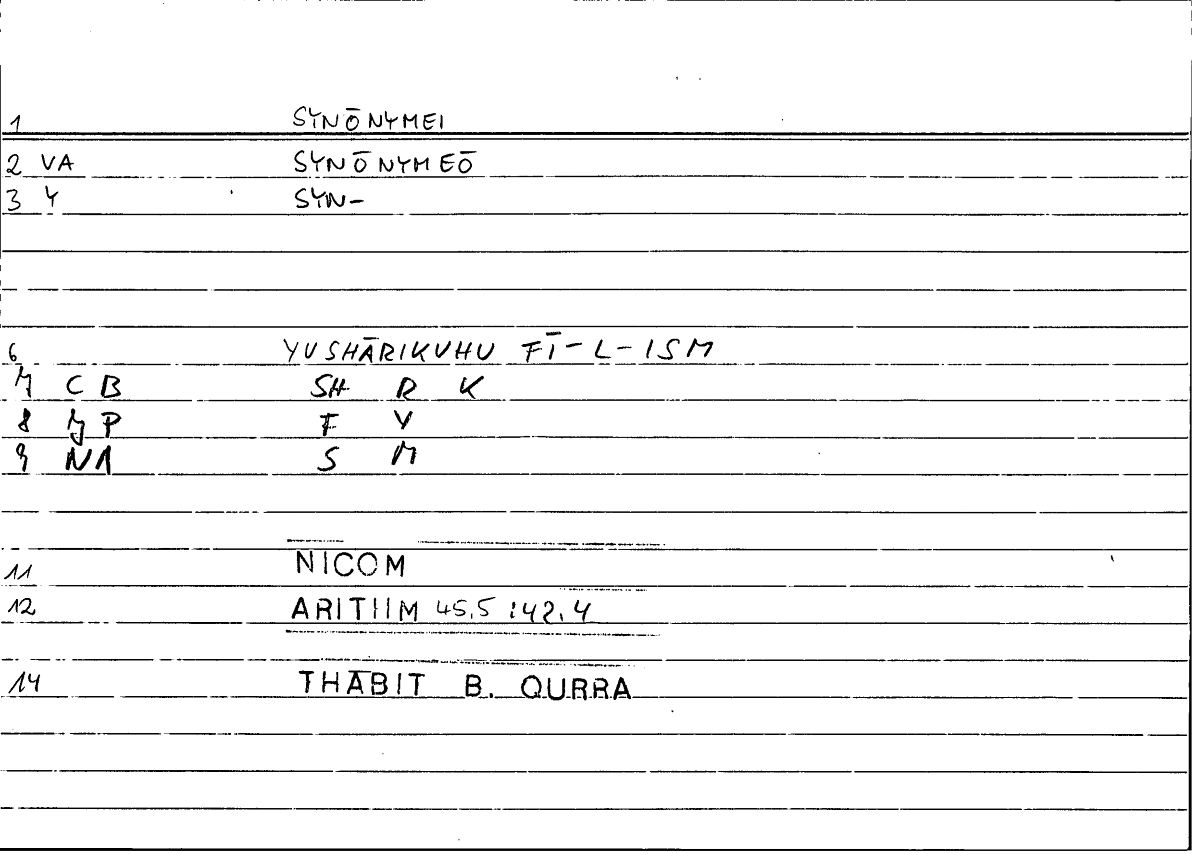 1 SYNŌNYMEI
2 VA SYNŌNYMEŌ
3 Y SYN-
6 YUSHĀRIKUHU FĪ-L-ISM
7 CB SH R K
8 YP F Y
9 N1 S M
11 NICOM
12 ARITIIM 45,5:42,4
14 THĀBIT B. QURRA